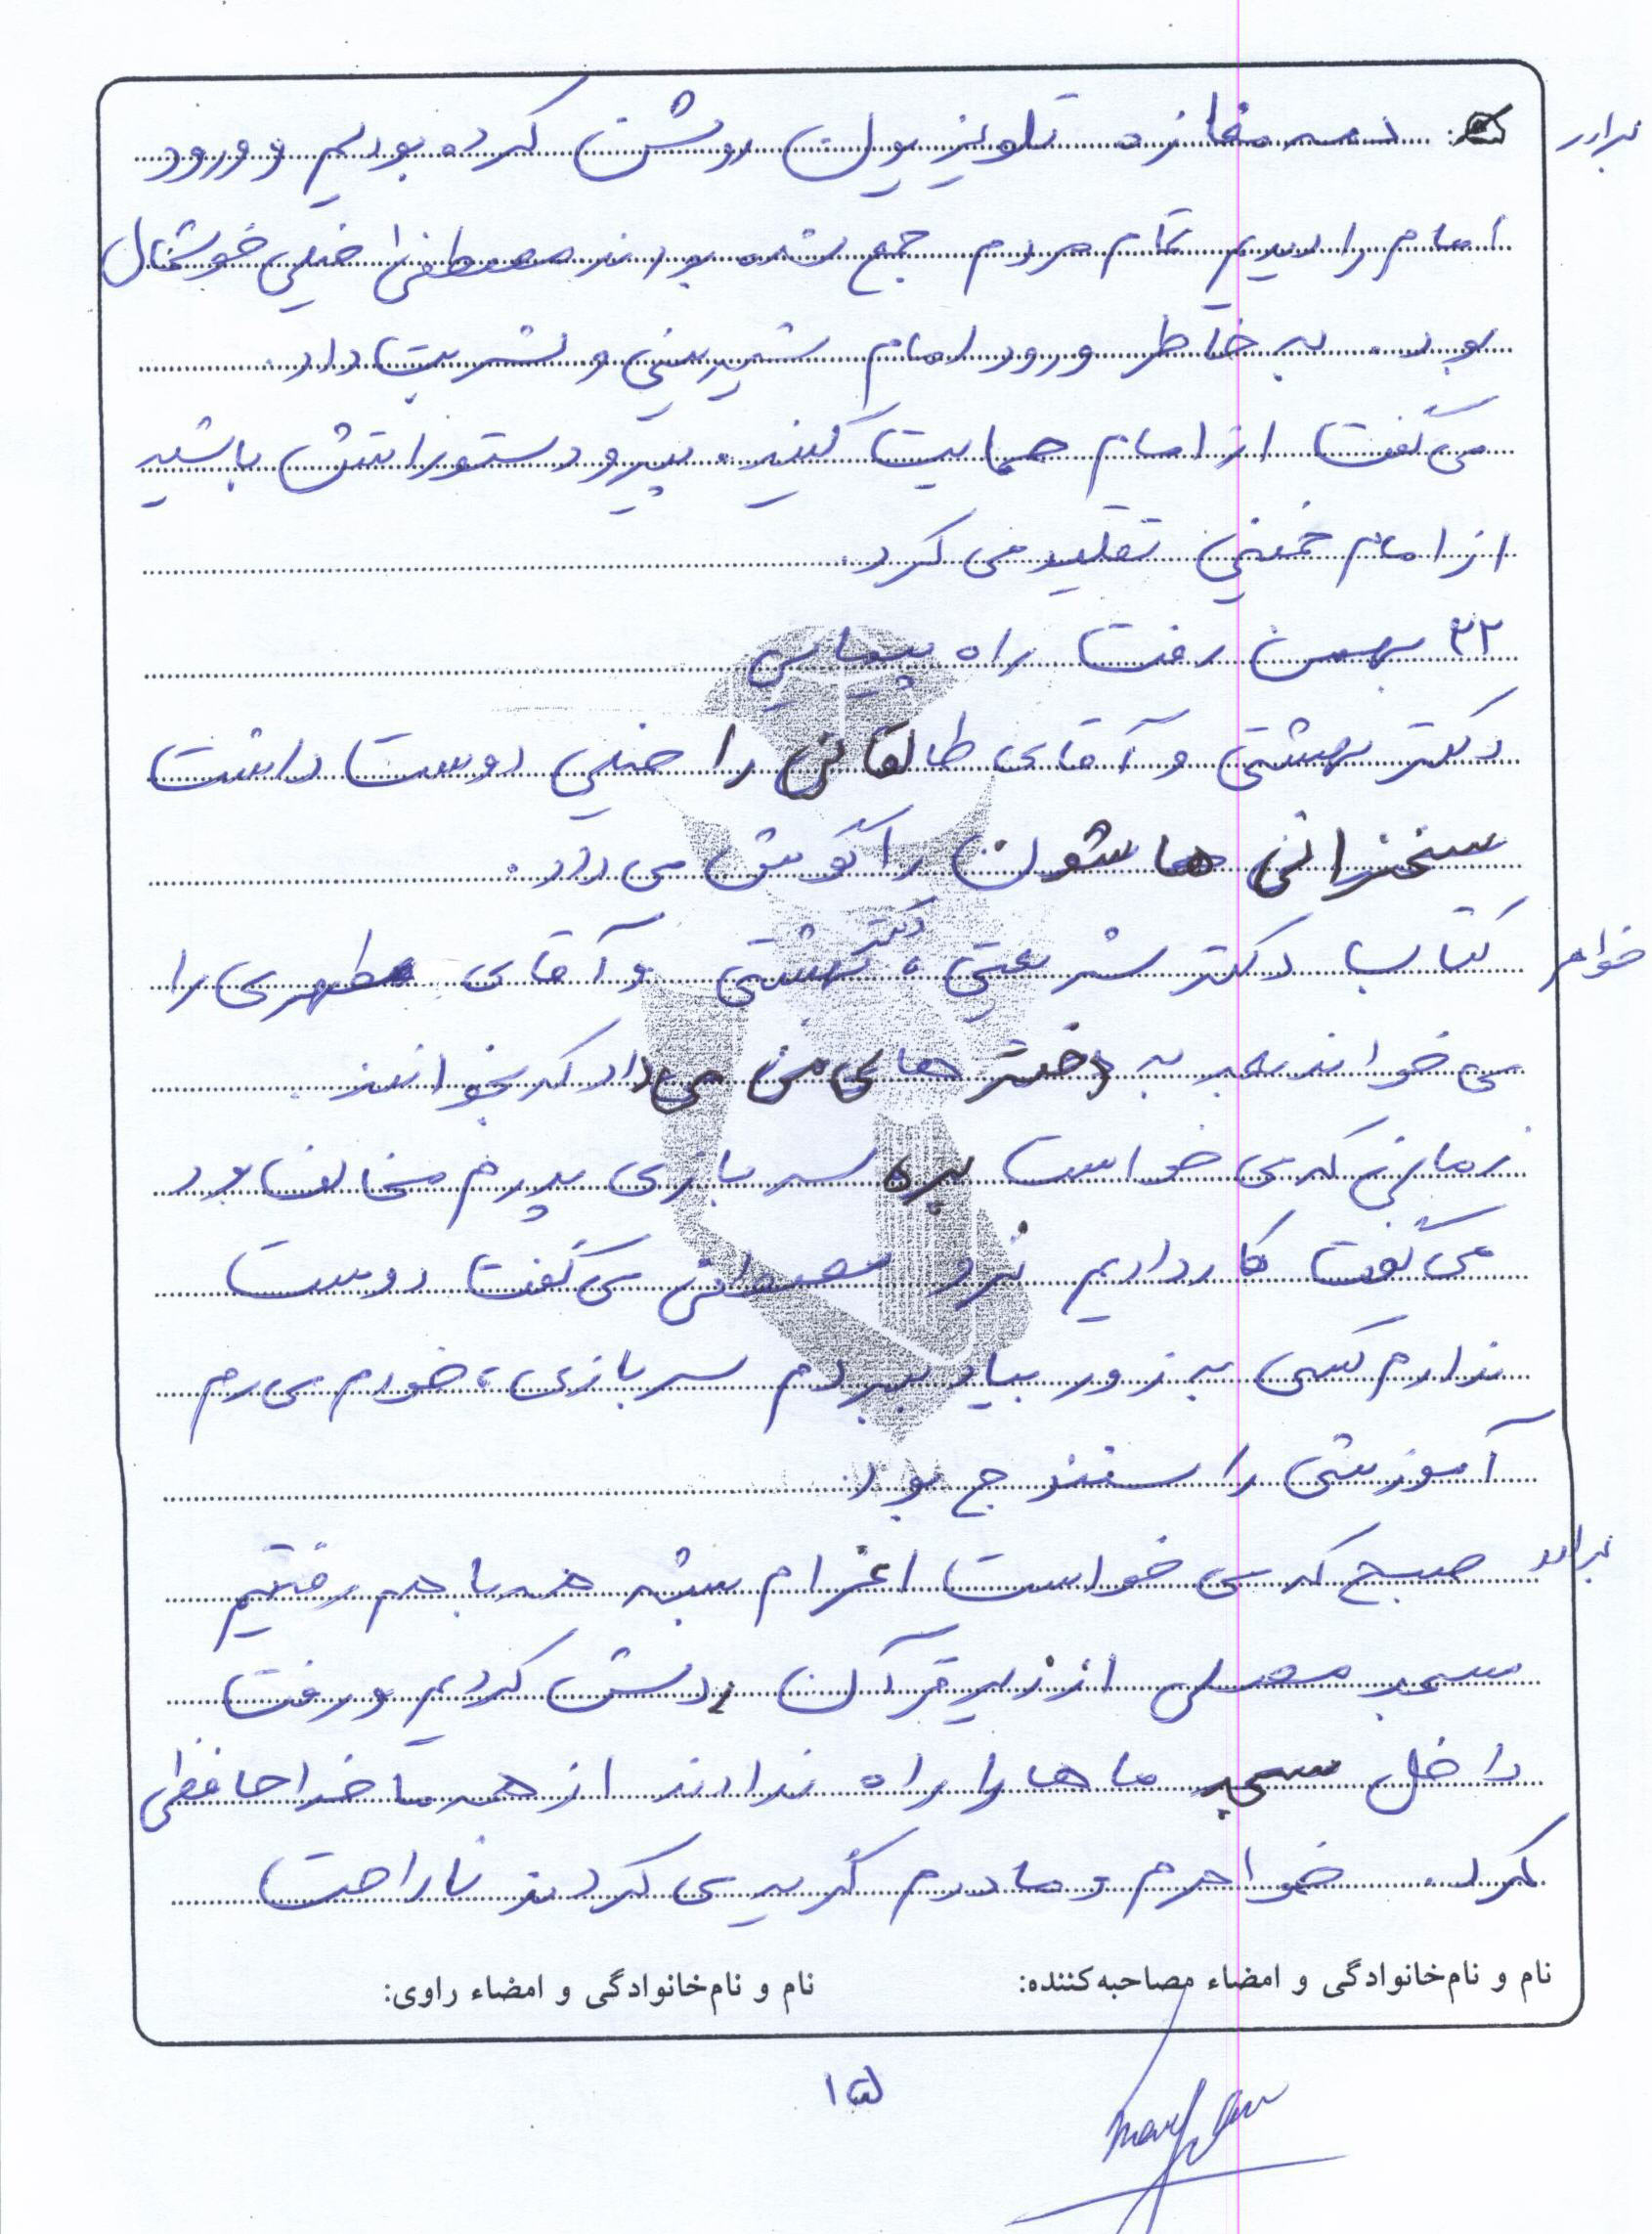 برادر
دمه مغازه تلویزیون روشن کرده بودیم و ورود
امام را دیدیم تمام مردم جمع شده بودند مصطفی خیلی خوشحال
بود. به خاطر ورود امام شیرینی و شربت داد.
می‌گفت از امام حمایت کنید. پیرو دستوراتش باشید
از امام خمینی تقلید می کرد.
۲۲ بهمن رفت راه پیمایی
دکتر بهشتی و آقای طالقانی را خیلی دوست داشت
سخنرانی هاشون را گوش می داد.
خواهر
کتاب دکتر شریعتی، دکتر بهشتی و آقای مطهری را
می خواند به دختر های من می داد که بخوانند.
زمانی که می خواست بره سربازی پدرم مخالف بود
می گفت کار داریم نرو مصطفی می گفت دوست
ندارم کسی به زور بیاد ببردم سربازی، خودم می رم
آموزشی را سنندج بود.
برادر
صبح که می خواست اعزام بشه همه با هم رفتیم
مسجد مصلی از زیر قرآن ردش کردیم و رفت
داخل مسجد ماها را راه ندادند از همه ما خداحافظی
کرد. خواهرم و مادرم گریه می کردند ناراحت
نام و نام‌خانوادگی و امضاء مصاحبه‌کننده:
نام و نام‌خانوادگی و امضاء راوی:
۱۵